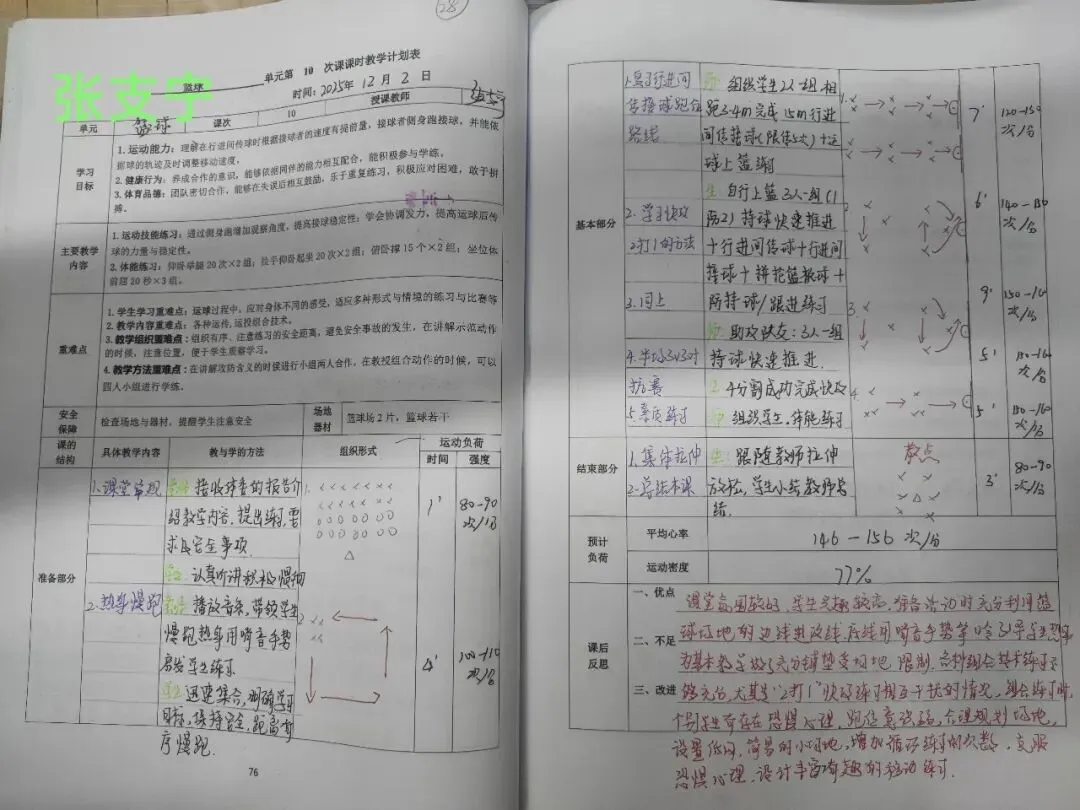 28
张支宁
篮球 单元第 10 次课课时教学计划表
时间：2025年 12 月 2 日
单元 篮球 课次 10 授课教师
学习目标
1. 运动能力：理解在行进间传球时根据接球者的速度有提前量，接球者侧身跑接球，并能依
据球的轨迹及时调整移动速度，
2. 健康行为：养成合作的意识，能够依据同伴的能力相互配合，能积极参与学练。
3. 体育品德：团队密切合作，能够在失误后相互鼓励，乐于重复练习，积极应对困难，敢于拼
搏。
主要教学内容
1. 运动技能练习：通过侧身跑增加观察角度，提高接球稳定性；学会协调发力，提高运球后传
球的力量与稳定性。
3. 体能练习：仰卧举腿 20 次×2 组；扶手仰卧起坐 20 次×2 组；俯卧撑 15 个×2 组；坐位体
前屈 20 秒×3 组。
重难点
1. 学生学习重难点：运球过程中，应对身体不同的感受，适应多种形式与情境的练习与比赛等
2. 教学内容重难点：各种运传、运投组合技术。
3. 教学组织重难点：组织有序、注意练习的安全距离，避免安全事故的发生，在讲解示范动作
的时候，注意位置，便于学生观察学习。
4. 教学方法重难点：在讲解攻防含义的时候进行小组两人合作，在教授组合动作的时候，可以
四人小组进行学练。
安全保障 检查场地与器材，提醒学生注意安全 场地器材 篮球场 2 片，篮球若干
课的结构 具体教学内容 教与学的方法 组织形式 运动负荷
时间 强度
准备部分
1.课堂常规
接收体委的报告介
绍教学内容，提出练习要
求及安全事项
认真听讲积极
1'
80-90
次/分
2.热身慢跑
播放音乐，带领学生
慢跑热身用哨音手势
学生练习
迅速集合，明确学习
目标，保持安全，距离有
序慢跑.
4'
100-110
次/分
76
基本部分
行进间
传接球跑位
路线
组织学生2人一组相
距3-4m完成15m行进
间传接球(限传5次)+运
球上篮练习
7'
120-150
次/分
2.学习快攻
2打1的方法
生：自行上篮3人一组(1
防2)持球快速推进
+行进间传球+行进间
接球+ 篮 球+
防持球/跟进练习
6'
次/分
3.同上
：3人一组
持球快速推进
9'
次/分
4.半场3v3对
抗赛
成功完成快攻
5'
次/分
5.素质练习
组织学生,体能练习
5'
次/分
结束部分
1.集体拉伸
2.总结本课
生：跟随教师拉伸
放松，学生小结教师总
结.
散点
3'
80-90
次/分
预计负荷
平均心率 146-156 次/分
运动密度 77%
课后反思
一、优点 课堂氛围较好，学生兴趣较高，准备活动时充分利用篮
二、不足 球场地的边线进攻线底线用哨音手势等 引导学生热身
为基本教学做了充分铺垫受场地 限制，各种组合技术练习不
三、改进 够充分，尤其是“2打1”快攻练习相互干扰的情况，组合练习时，
个别学生存在恐惧心理，跑位意识弱，合理规划场地，
设置 简易的小场地，增加循环练习的次数，克服
恐惧心理，设计丰富有趣的移动练习.